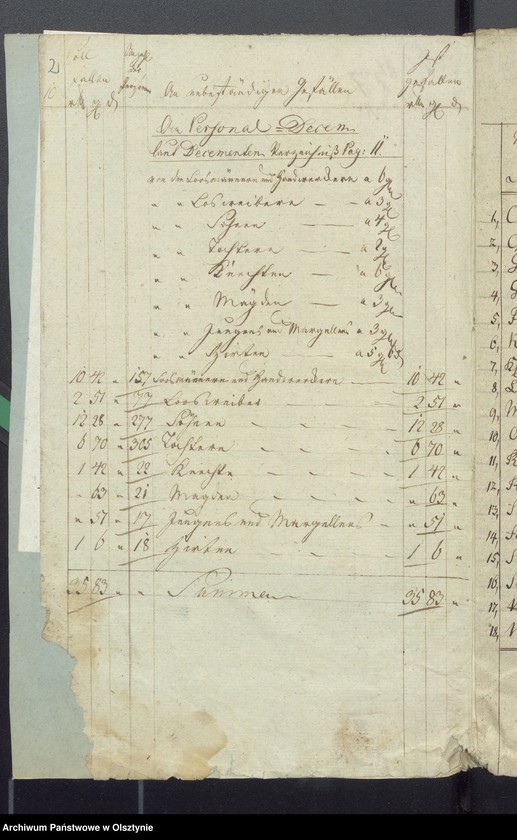 2
Soll
Anzahl
der
Personen
An unbeständigen Gefällen
Ist
gefallen
An Personal Decem
laut Decementen Verzeichniß Pag: 11
von den Loosmännern und Handwerckern a 6 gr
" " Loosweibern — a 3 gr
" " Söhnen — a 4 gr
" " Töchtern — a 2 gr
" " Knechten — a 6 gr
" " Mägden — a 3 gr
" " Jungens und Margellens a 3 gr
" " Hirten — a 5 gr
10 42 " 157 Loosmännern und Handwerckern — 10 42 "
2 51 " 77 Loosweiber 2 51 "
12 28 " 277 Söhnen 12 28 "
6 70 " 305 Töchtern 6 70 "
1 42 " 22 Knechte 1 42 "
" 63 " 21 Mägden " 63 "
" 51 " 17 Jungens und Margellens " 51 "
1 6 " 18 Hirten 1 6 "
35 83 " " Summen 35 83 "
1,
2,
3,
4,
5,
6,
7,
8,
9,
10,
11,
12,
13,
14,
15,
16,
17,
18,
Archiwum Państwowe w Olsztynie